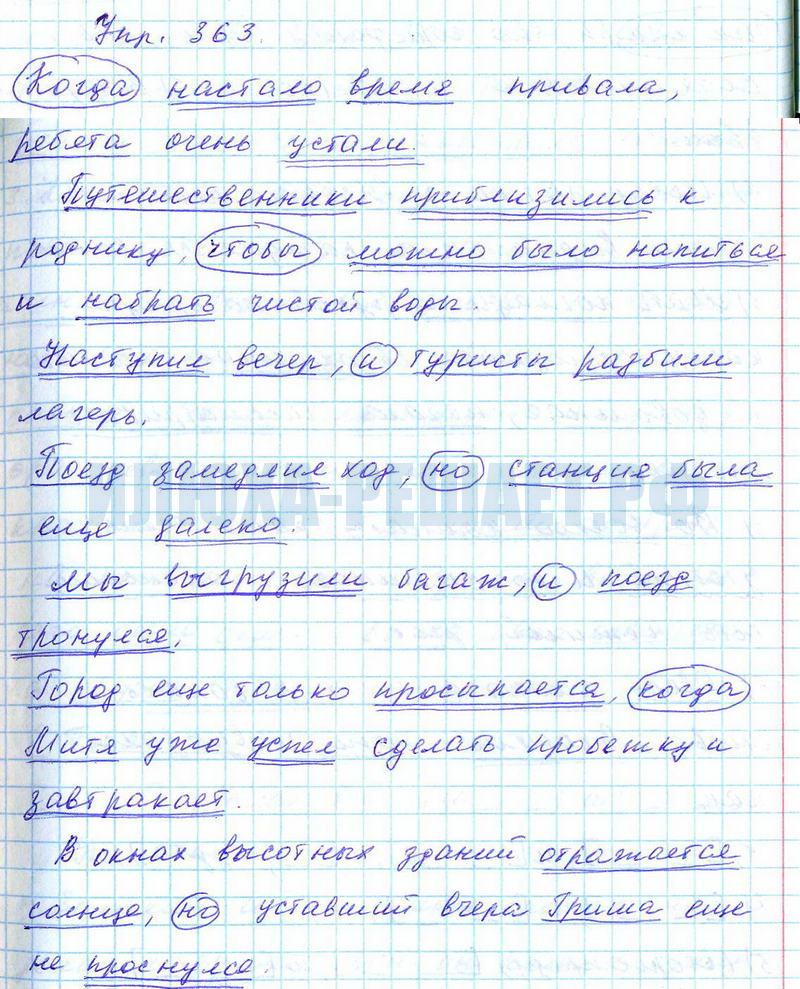 Упр. 363.
Когда настало время привала,
ребята очень устали.
Путешественники приблизились к
роднику, чтобы можно было напиться
и набрать чистой воды.
Наступил вечер, и туристы разбили
лагерь.
Поезд замедлил ход, но станция была
ИЛЮХА-РЕШАЕТ.РФ
еще далеко.
Мы выгрузили багаж, и поезд
тронулся.
Город еще только просыпается, когда
Митя уже успел сделать пробежку и
завтракает.
В окнах высотных зданий отражается
солнце, но уставший вчера Гриша еще
не проснулся.